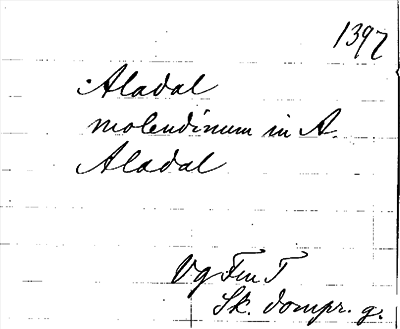 1397
Aladal
molendinum in A.
Aladal
Vg Fm T
Sk. dompr. g.